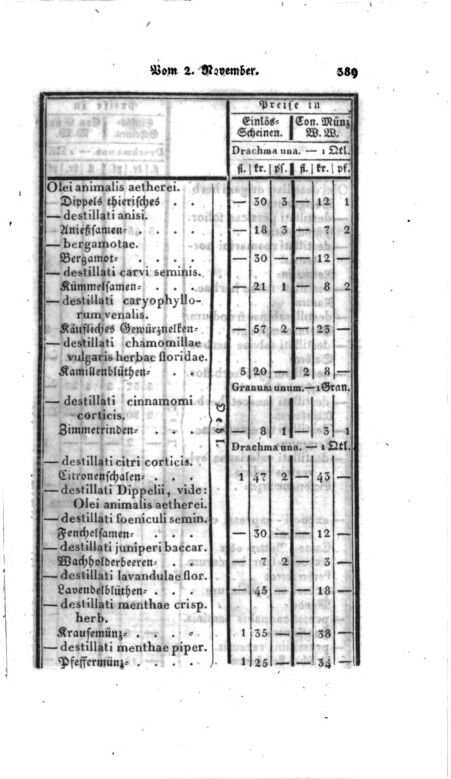 Vom 2. November. 389
Preise in
Einlös- Con. Münz
Scheinen. W. W.
Drachma una. — 1 Qtl.
fl. kr. pf. fl. kr. pf.
Olei animalis aetherei.
Dippels thierisches . . — 30 3 — 12 1
— destillati anisi.
Anießsamen- . . . — 18 3 — 7 2
— bergamotae.
Bergamot- . . . — 30 — — 12 —
— destillati carvi seminis.
Kümmelsamen- . . — 21 1 — 8 2
— destillati caryophyllo-
rum venalis.
Käufliches Gewürznelken- — 57 2 — 23 —
— destillati chamomillae
vulgaris herbae floridae.
Kamillenblüthen- . . 5 20 — 2 8 —
Granum unum. — 1 Gran.
— destillati cinnamomi
corticis.
Zimmetrinden- . . . — 8 1 — 3 1
Oehl.
Drachma una. — 1 Qtl.
— destillati citri corticis.
Citronenschalen- . . . 1 47 2 — 43 —
— destillati Dippelii, vide:
Olei animalis aetherei.
— destillati foeniculi semin.
Fenchelsamen- . . . — 30 — — 12 —
— destillati juniperi baccar.
Wachholderbeeren- . . — 7 2 — 3 —
— destillati lavandulae flor.
Lavendelblüthen- . . — 45 — — 18 —
— destillati menthae crisp.
herb.
Krausemünz- . . . . 1 35 — — 38 —
— destillati menthae piper.
Pfeffermünz- . . . . 1 25 — — 34 —